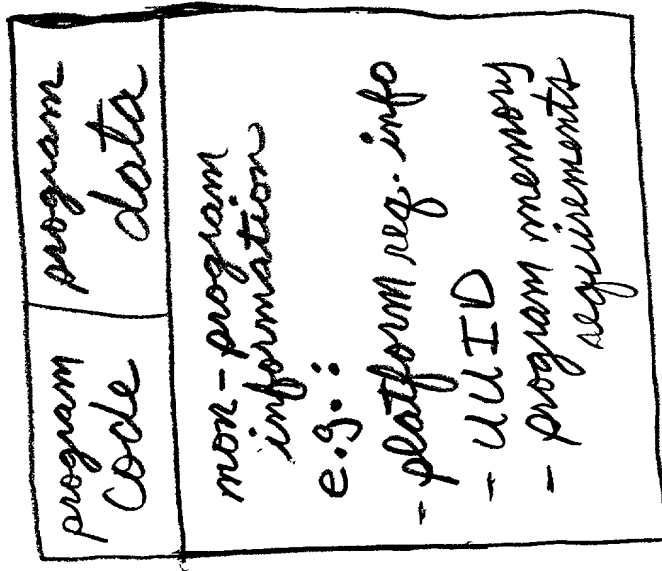 program
code
program
data
non-program
information
e.g.:
- platform req. info
- UUID
- program memory
requirements